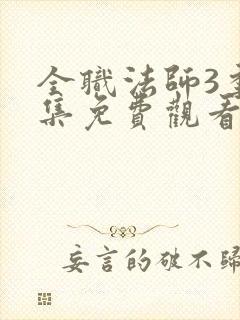 全職法師3季
集免費觀看
妄言的破不歸